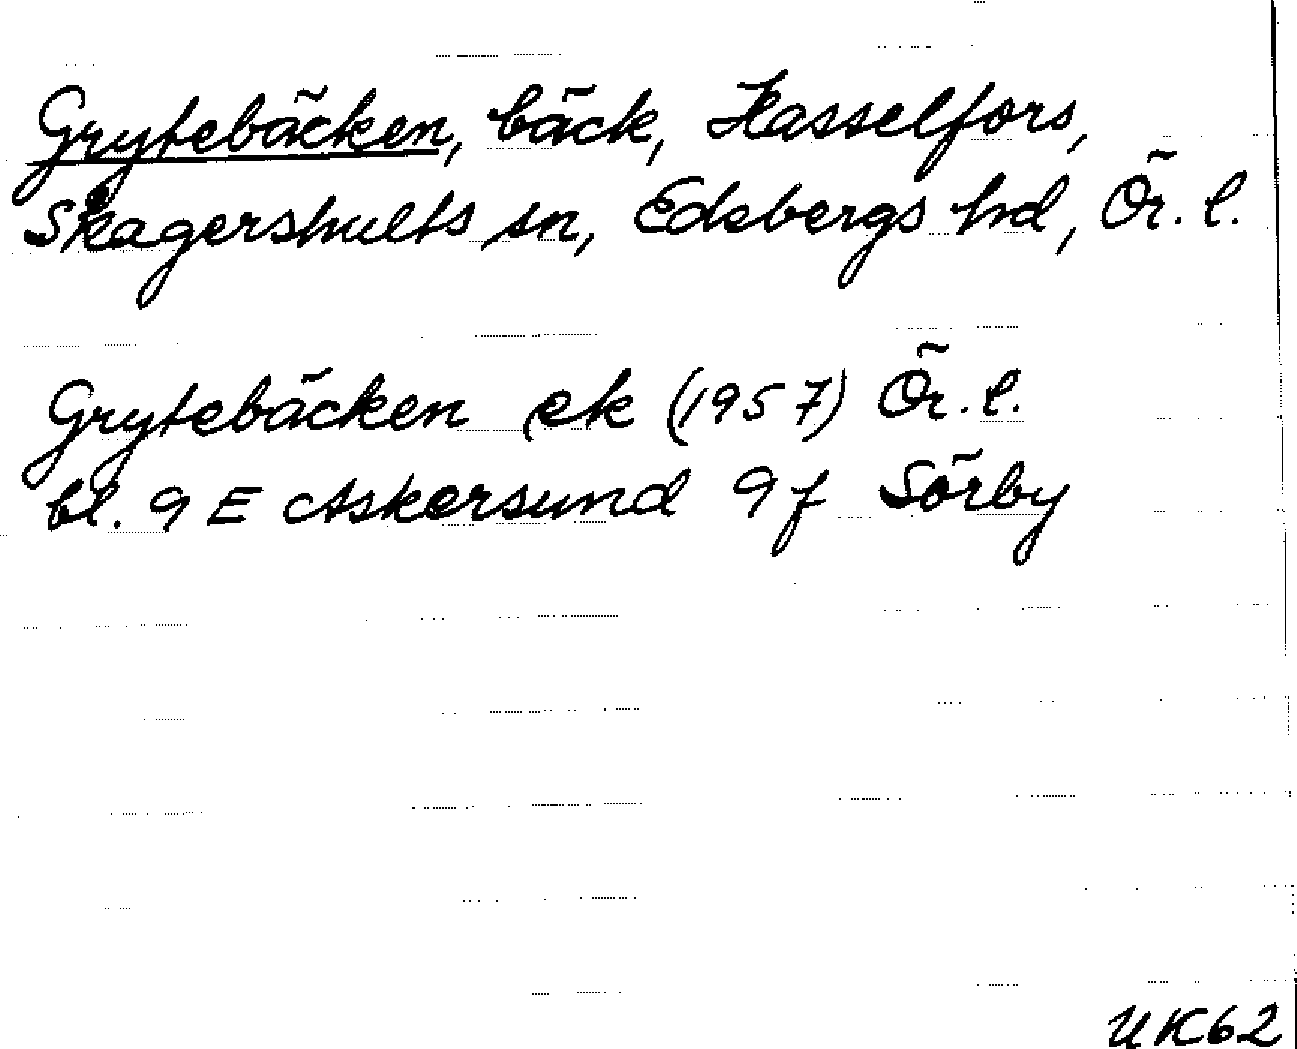 Grytebäcken, bäck, Hasselfors,
Skagershults sn, Edsbergs hd, Ör. l.
Grytebäcken ek (1957) Ör. l.
bl. 9 E Askersund 9f Sörby
UK62